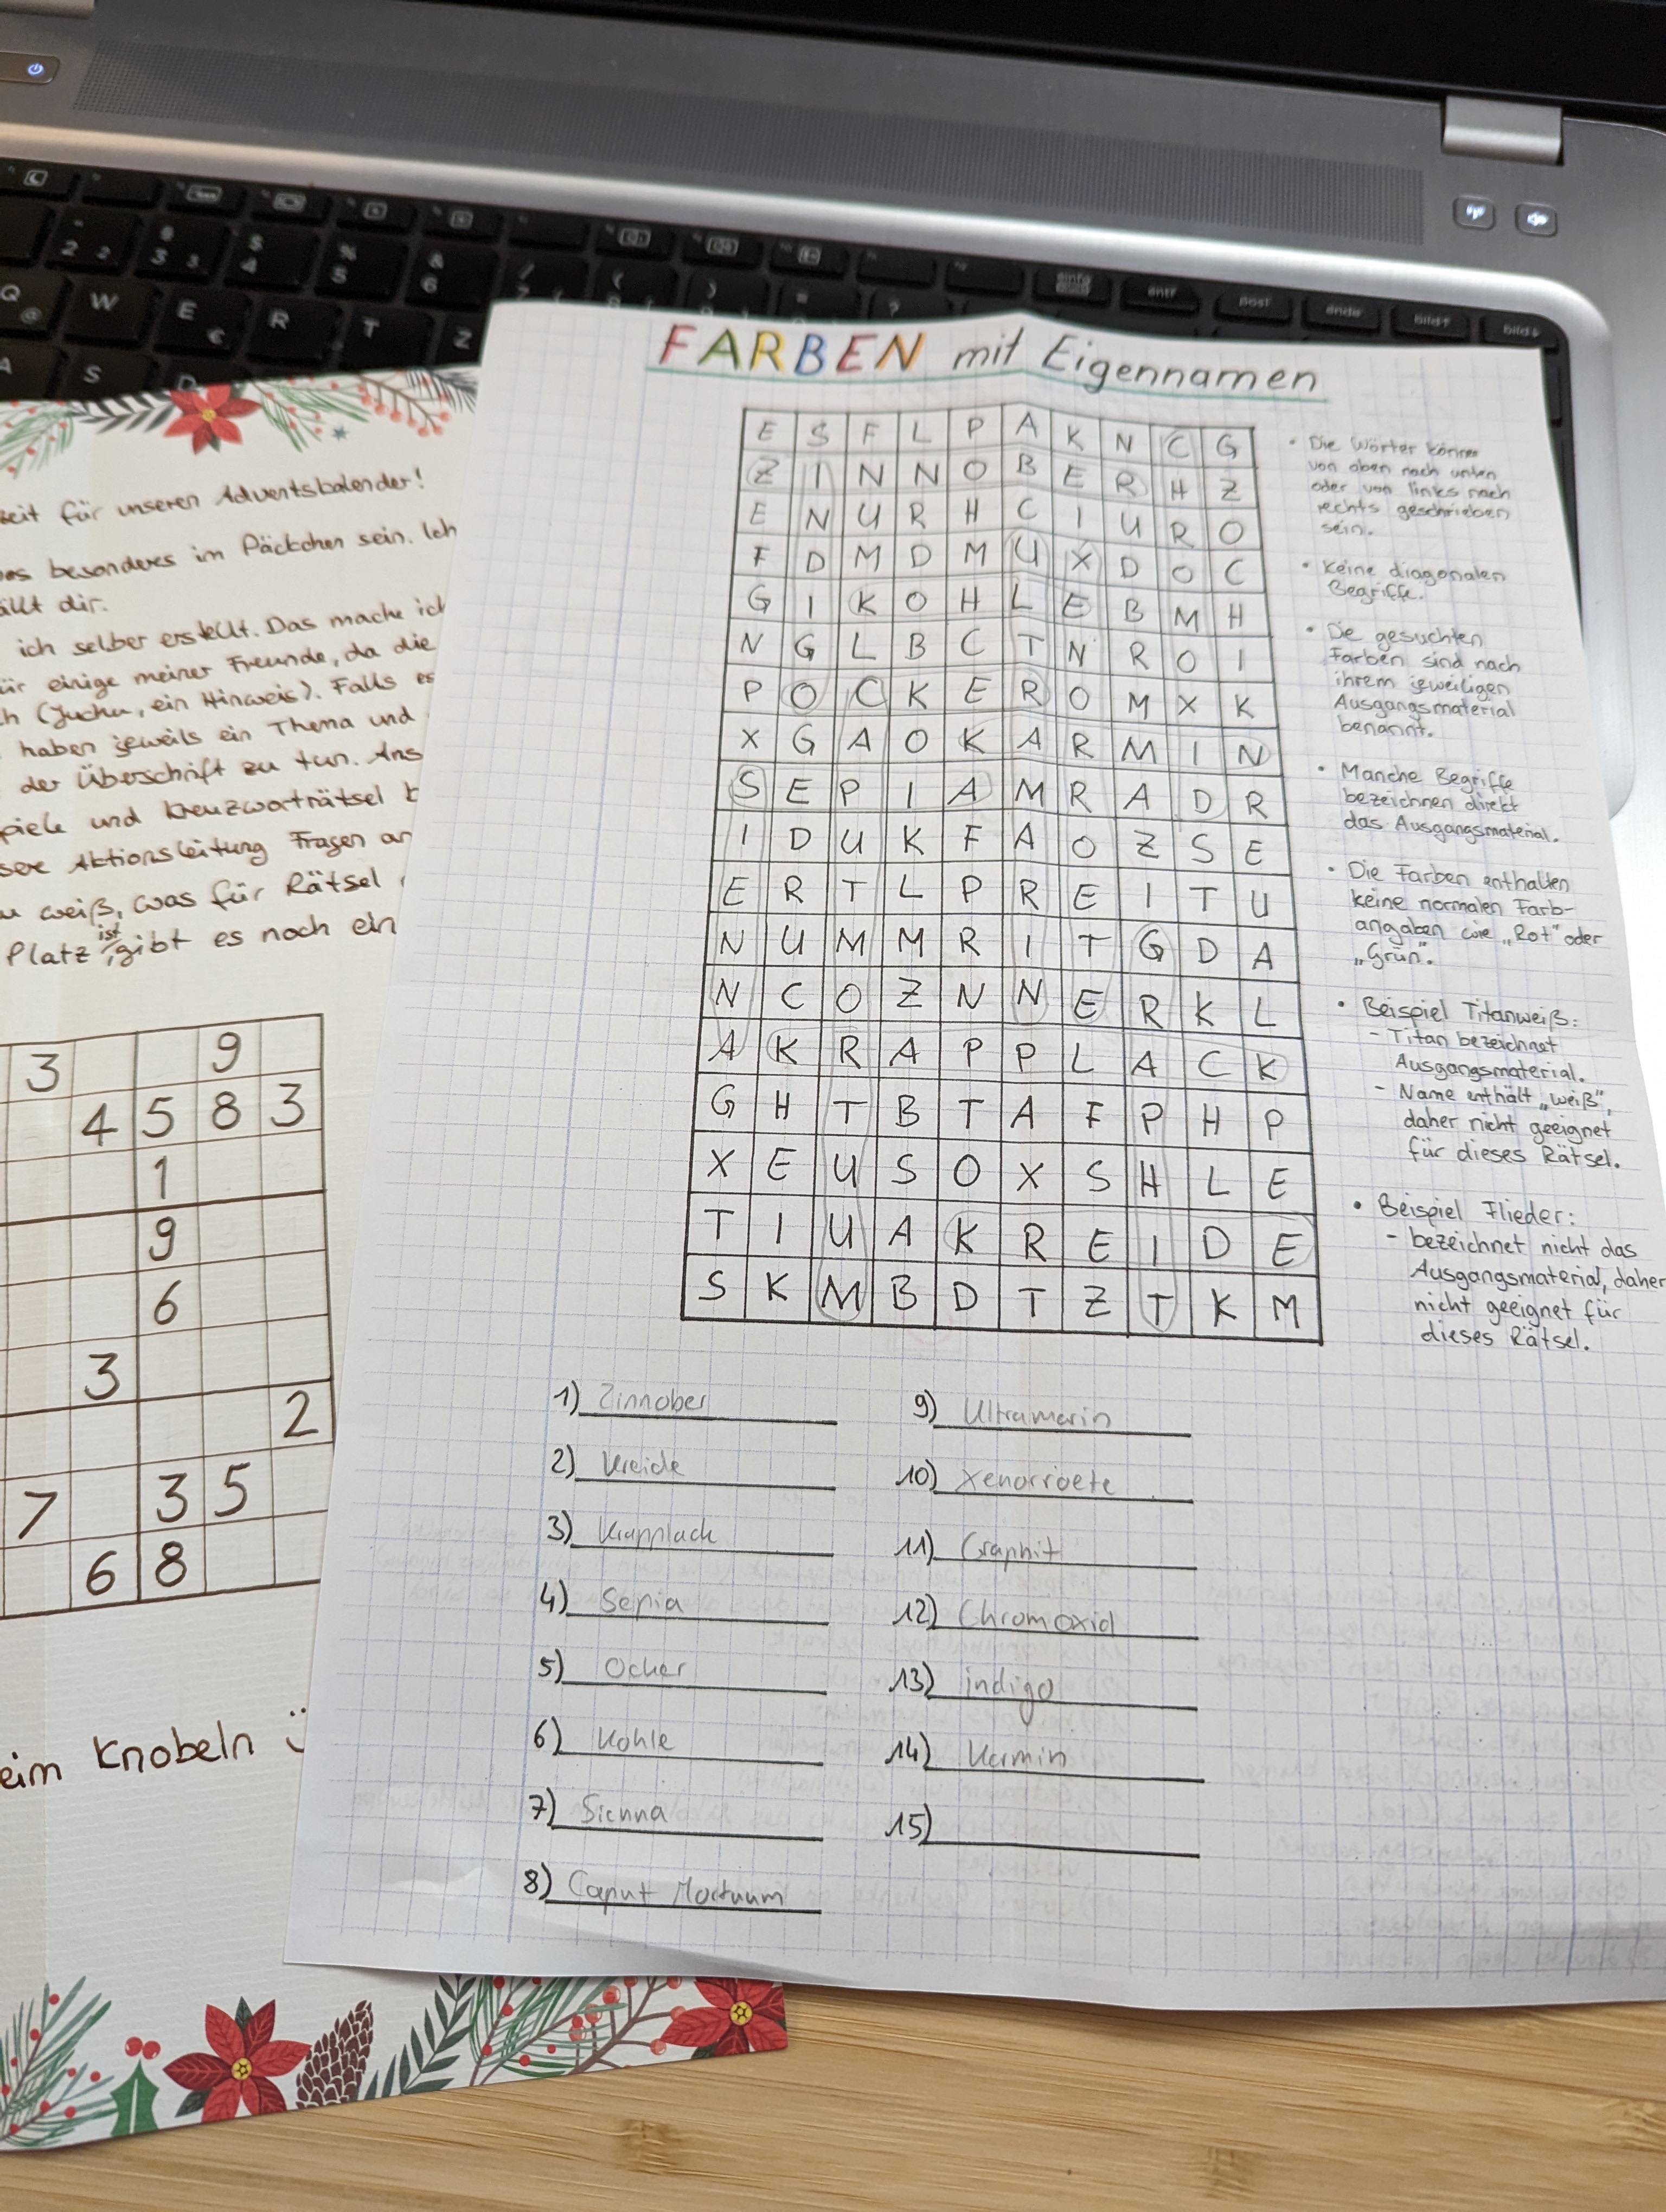 2 2
3 3
$ 4
% 5
& 6
Q @
W
E €
R
T
Z
A
S
D
einfg
entf
pos1
ende
bild↑
bild↓
für unseren Adventskalender!
besonderes im Päckchen sein. Ich
dir.
ich selber erstellt. Das mache ich
einige meiner Freunde, da die
(Juchu, ein Hinweis). Falls es
haben jeweils ein Thema und
der Überschrift zu tun. Ans
und Kreuzworträtsel
Aktionsleitung Fragen an
weiß, was für Rätsel
Platz ist, gibt es noch ein
3 9
4 5 8 3
1
9
6
3
2
7 3 5
6 8
eim Knobeln :)
FARBEN mit Eigennamen
E S F L P A K N C G
Z I N N O B E R H Z
E N U R H C I U R O
F D M D M U X D O C
G I K O H L E B M H
N G L B C T N R O I
P O C K E R O M X K
X G A O K A R M I N
S E P I A M R A D R
I D U K F A O Z S E
E R T L P R E I T U
N U M M R I T G D A
N C O Z N N E R K L
A K R A P P L A C K
G H T B T A F P H P
X E U S O X S H L E
T I U A K R E I D E
S K M B D T Z T K M
• Die Wörter können
von oben nach unten
oder von links nach
rechts geschrieben
sein.
• Keine diagonalen
Begriffe.
• Die gesuchten
Farben sind nach
ihrem jeweiligen
Ausgangsmaterial
benannt.
• Manche Begriffe
bezeichnen direkt
das Ausgangsmaterial.
• Die Farben enthalten
keine normalen Farb-
angaben wie „Rot" oder
„Grün".
• Beispiel Titanweiß:
- Titan bezeichnet
Ausgangsmaterial.
- Name enthält „weiß",
daher nicht geeignet
für dieses Rätsel.
• Beispiel Flieder:
- bezeichnet nicht das
Ausgangsmaterial, daher
nicht geeignet für
dieses Rätsel.
1) Zinnober
2) Kreide
3) Krapplack
4) Sepia
5) Ocker
6) Kohle
7) Sienna
8) Caput Mortuum
9) Ultramarin
10) Xenorroete
11) Graphit
12) Chromoxid
13) indigo
14) Karmin
15)